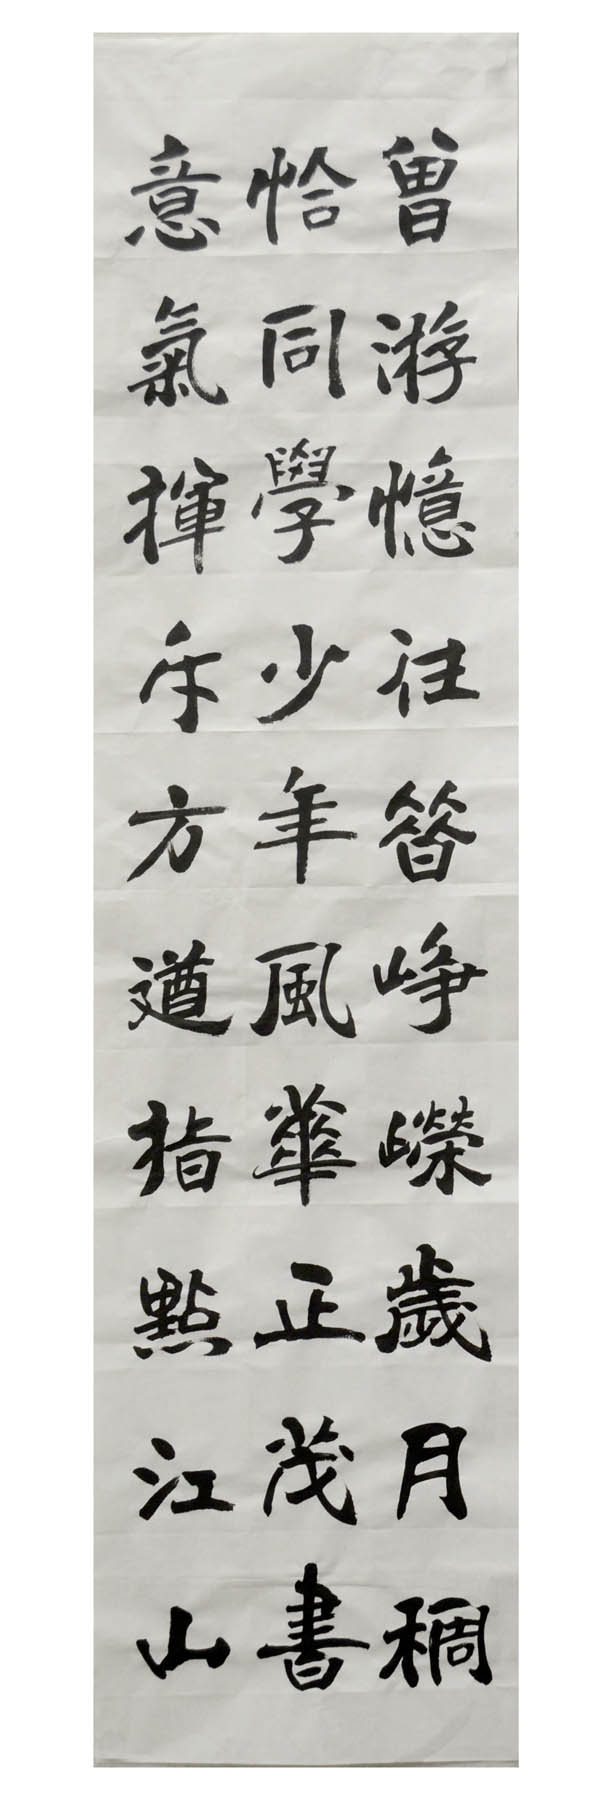 曾游憶往昔崢嶸歲月稠
恰同學少年風華正茂書
意氣揮斥方遒指點江山